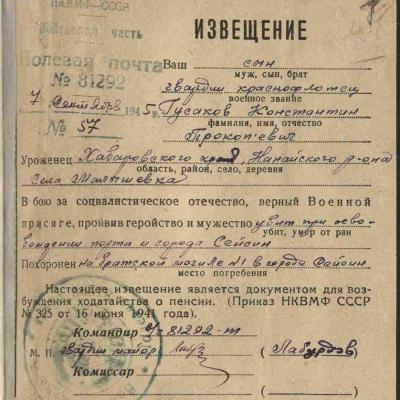 НКВМФ—СССР
Войсковая часть
Полевая почта
№ 81292
7 Сентября 1945 г.
№ 57
ИЗВЕЩЕНИЕ
Ваш сын
муж, сын, брат
гвардии краснофлотец
военное звание
Гусаков Константин
фамилия, имя, отчество
Прокопьевич
Уроженец Хабаровского края, Нанайского р-она
область, район, село, деревня
Села Малышевка
В бою за социалистическое отечество, верный Военной
присяге, проявив геройство и мужество убит при осво-
убит, умер от ран
бождении порта и города Сейсин
Похоронен на братской могиле №1 в городе Сейсин
место погребения
Настоящее извещение является документом для воз-
буждения ходатайства о пенсии. (Приказ НКВМФ СССР
№ 325 от 16 июня 1941 года).
Командир 81292-т
М. П. гвардии майор (Лабурдов)
Комиссар